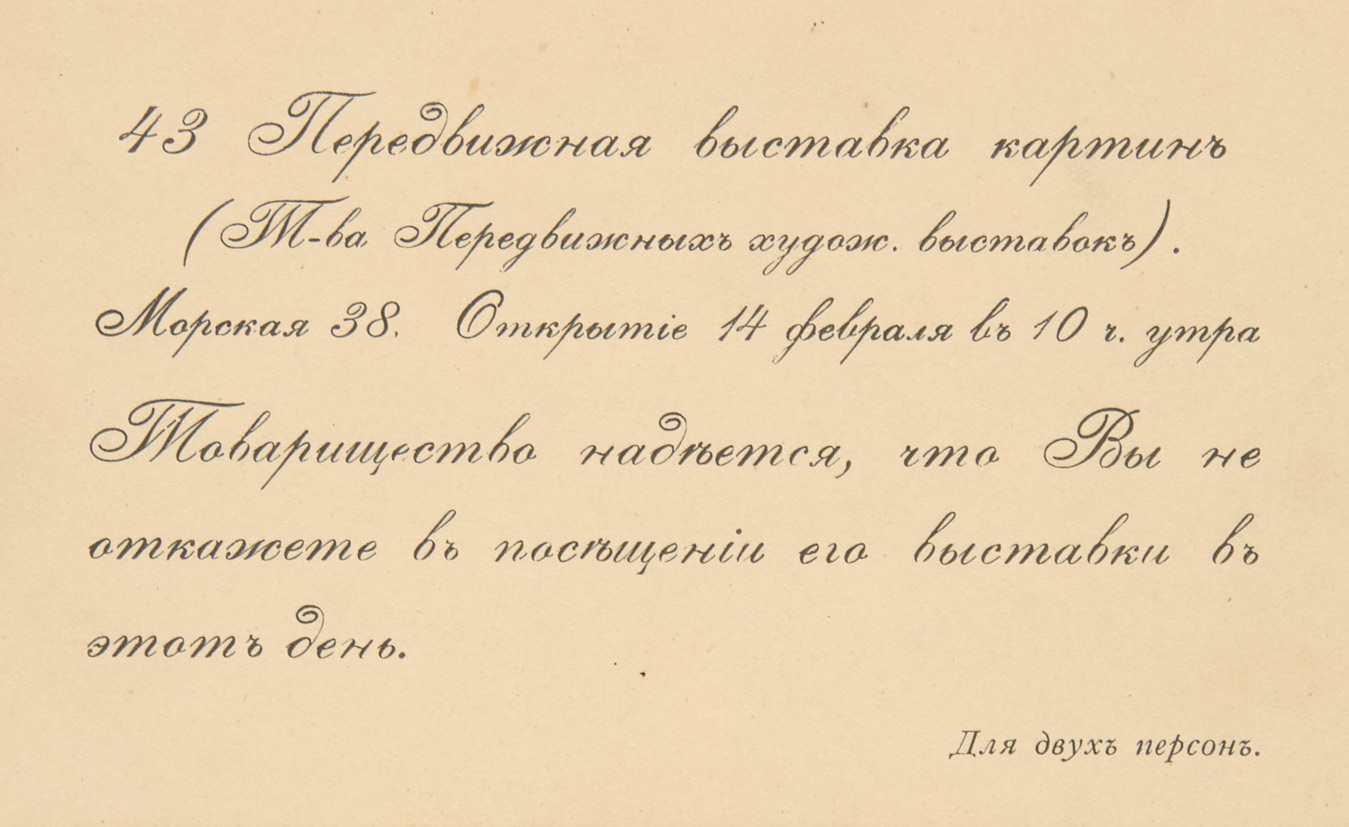 43 Передвижная выставка картинъ
(Т-ва Передвижныхъ худож. выставокъ).
Морская 38. Открытіе 14 февраля въ 10 ч. утра
Товарищество надѣется, что Вы не
откажете въ посѣщеніи его выставки въ
этотъ день.
Для двухъ персонъ.